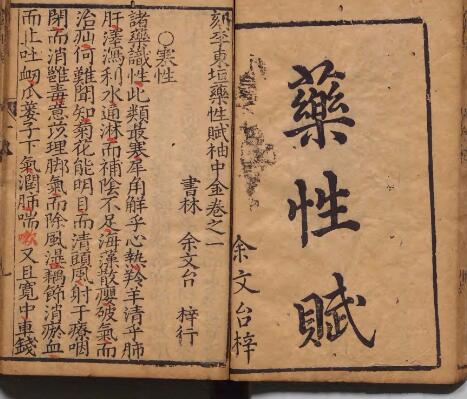 藥性賦
余文台梓
刻李東垣藥性賦袖中金卷之一
書林 余文台 梓行
○寒性
諸藥識性此類最寒犀角解乎心熱羚羊清乎肺
肝澤瀉利水通淋而補陰不足海藻散癭破氣而
治疝何難聞知菊花能明目而清頭風射于療咽
閉而消雝毒薏苡理脚氣而除風濕藕節消瘀血
而止吐衄瓜蔞子下氣潤肺喘嗽又且寬中車錢